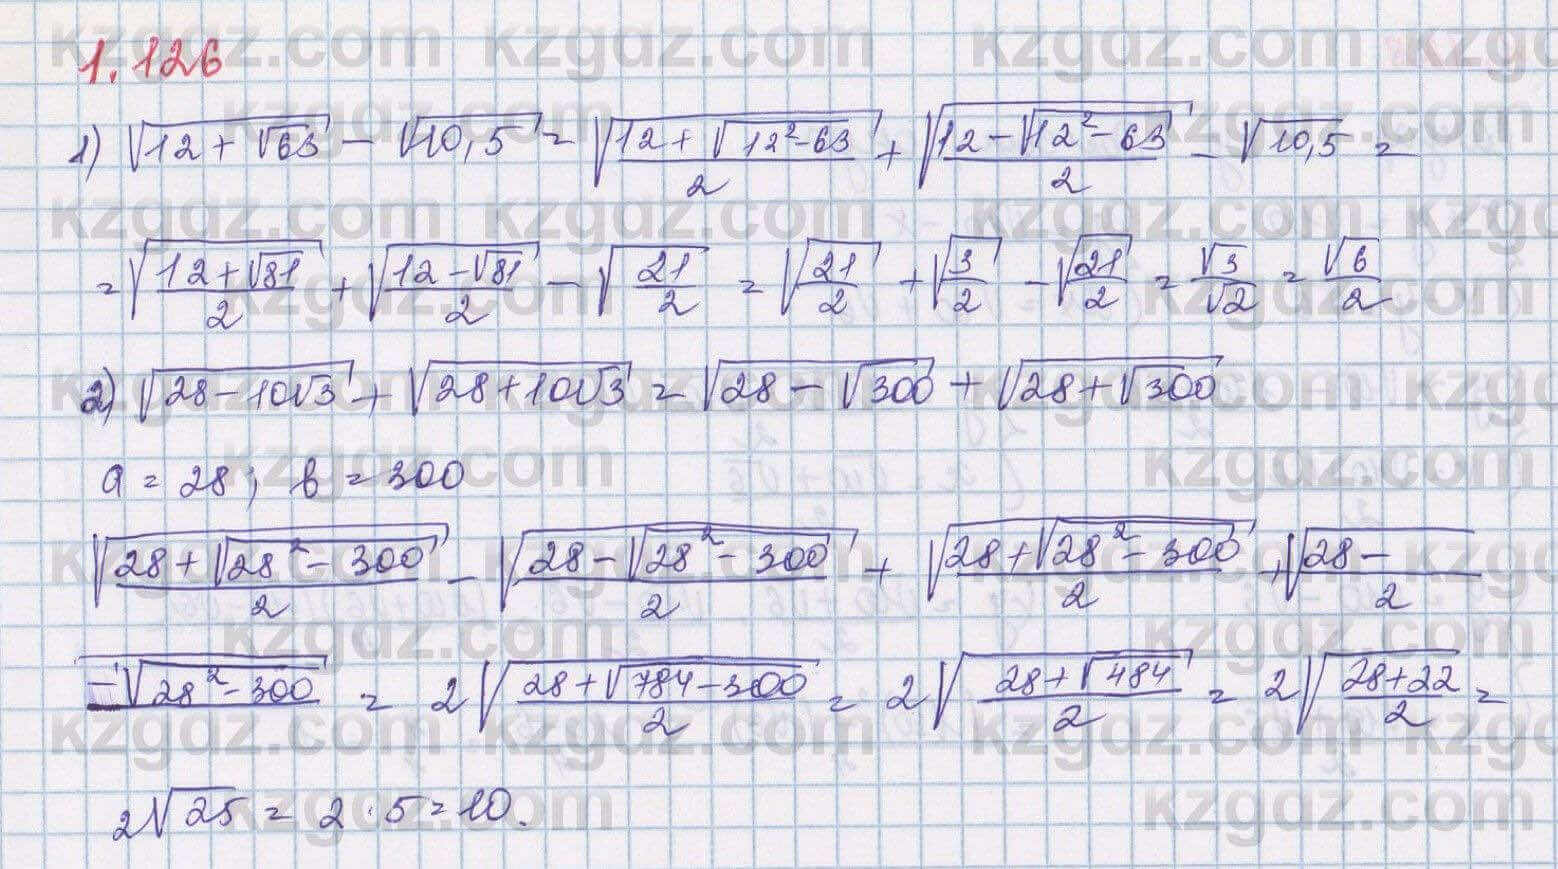 1.126
1) √(12+√63) − √10,5 = √((12+√(12²−63))/2) + √((12−√(12²−63))/2) − √10,5 =
= √((12+√81)/2) + √((12−√81)/2) − √(21/2) = √(21/2) + √(3/2) − √(21/2) = √3/√2 = √6/2
2) √(28−10√3) + √(28+10√3) = √(28−√300) + √(28+√300)
a = 28; b = 300
√((28+√(28²−300))/2) − √((28−√(28²−300))/2) + √((28+√(28²−300))/2) + √((28−)/2
−√(28²−300) = 2√((28+√(784−300))/2) = 2√((28+√484)/2) = 2√((28+22)/2) =
2√25 = 2·5=10.
kzgdz.com